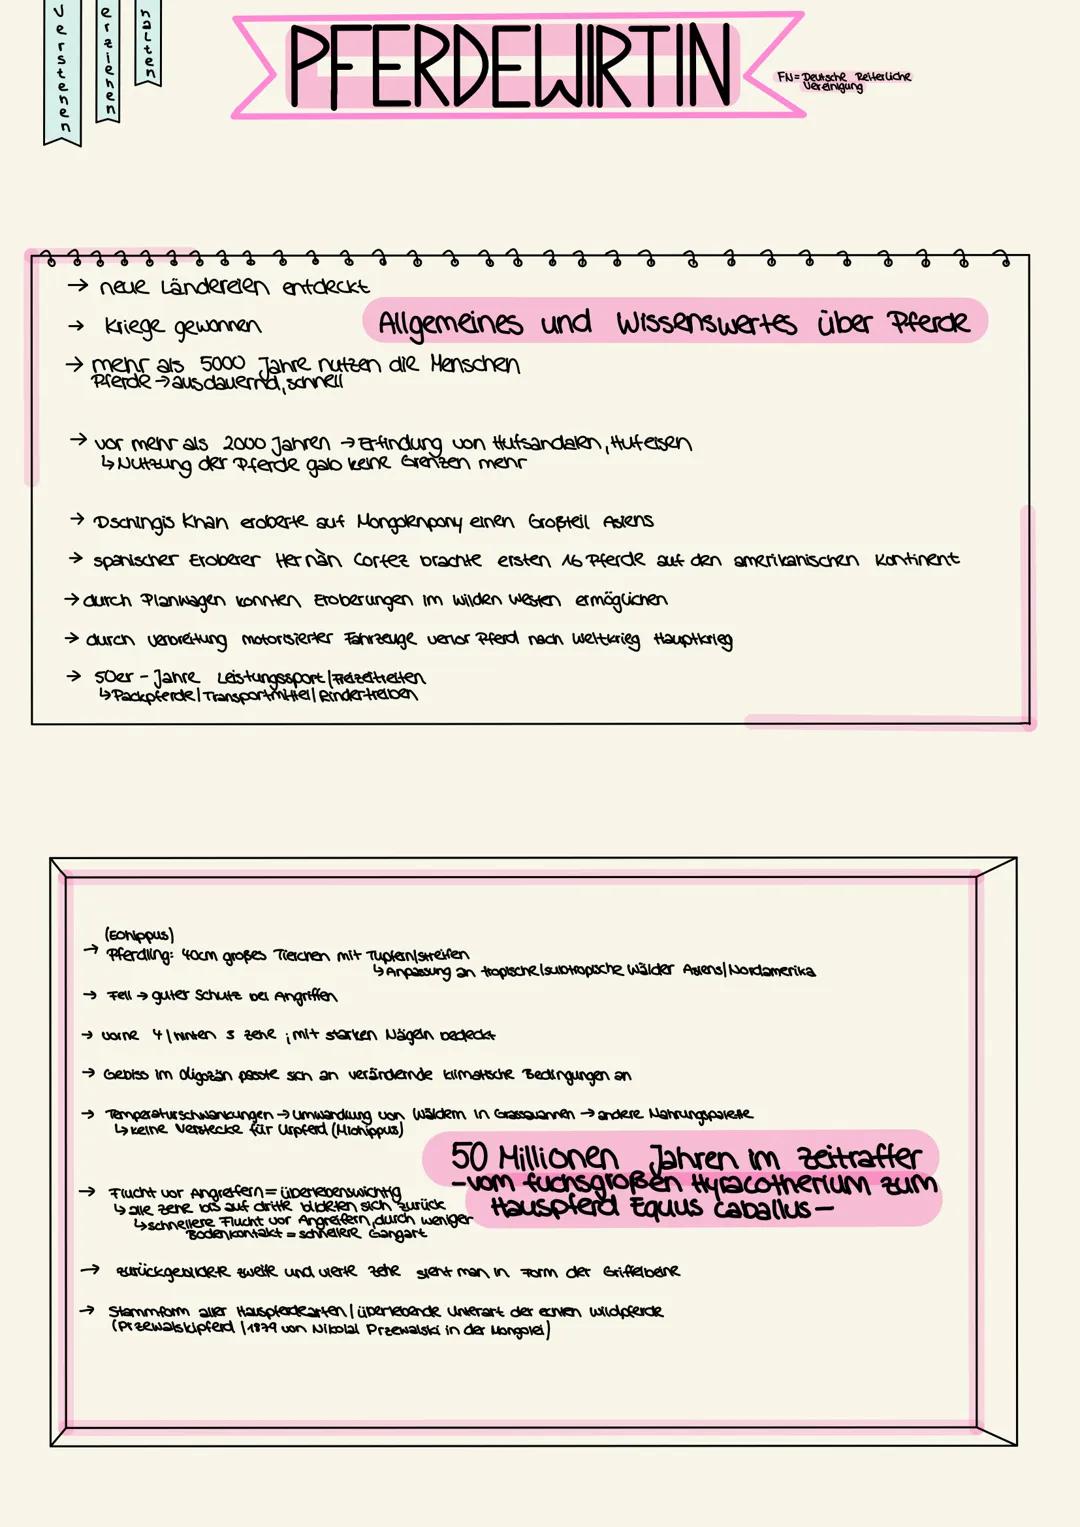 verstehen
erziehen
halten
PFERDEWIRTIN
FN= Deutsche Reiterliche
Vereinigung
→ neue Ländereien entdeckt
→ Kriege gewonnen
Allgemeines und Wissenswertes über Pferde
→ mehr als 5000 Jahre nutzen die Menschen
Pferde → ausdauernd, schnell
→ vor mehr als 2000 Jahren → Erfindung von Hufsandalen, Hufeisen
↳ Nutzung der Pferde gab keine Grenzen mehr
→ Dschingis Khan eroberte auf Mongolenpony einen Großteil Asiens
→ spanischer Eroberer Hernàn Cortez brachte ersten 16 Pferde auf den amerikanischen Kontinent
→ durch Planwagen konnten Eroberungen im wilden Westen ermöglichen
→ durch verbreitung motorisierter Fahrzeuge verlor Pferd nach Weltkrieg Hauptkrieg
→ 50er - Jahre Leistungssport / Freizeitreiten
↳ Packpferde / Transportmittel / Rindertreiben
(Eohippus)
→ Pferdling: 40cm großes Tierchen mit Tupfern/streifen
↳ Anpassung an tropische/subtropische Wälder Asiens/Nordamerika
→ Fell → guter Schutz bei Angriffen
→ vorne 4 / hinten 3 zehe ; mit starken Nägeln bedeckt
→ Gebiss im Oligozän passte sich an verändernde klimatische Bedingungen an
→ Temperaturschwankungen → Umwandlung von Wäldern in Grassavannen → andere Nahrungspalette
↳ keine Verstecke für Urpferd (Miohippus)
50 Millionen Jahren im Zeitraffer
-vom fuchsgroßen Hyracotherium zum
Hauspferd Equus caballus-
→ Flucht vor Angreifern= überlebenswichtig
↳ alle zehe bis auf dritte bildeten sich zurück
↳ schnellere Flucht vor Angreifern, durch weniger
Bodenkontakt = schnellere Gangart
→ zurückgebildete zweite und vierte zehe sieht man in Form der Griffelbeine
→ Stammform aller Hauspferdearten / überlebende Unterart der echten Wildpferde
(Przewalskipferd / 1879 von Nikolai Przewalski in der Mongolei)